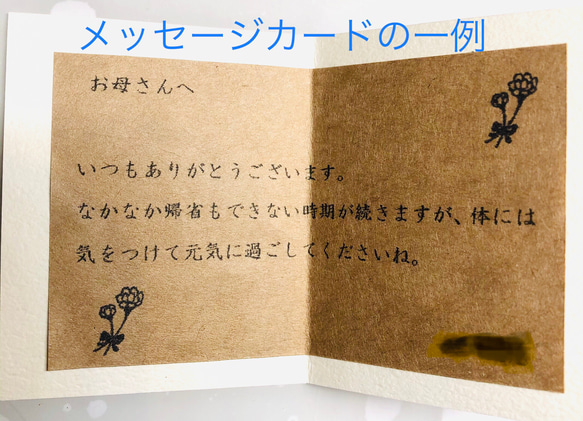 メッセージカードの一例
お母さんへ
いつもありがとうございます。
なかなか帰省もできない時期が続きますが、体には
気をつけて元気に過ごしてくださいね。